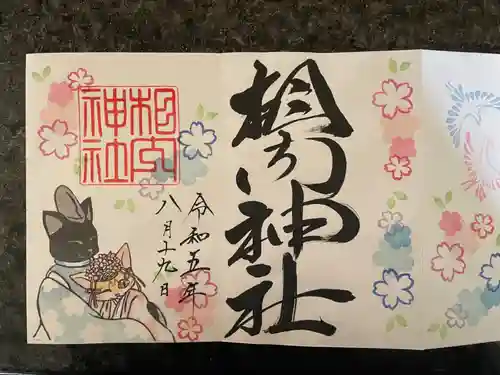 相内神社
令和五年
八月十九日
相内
神社